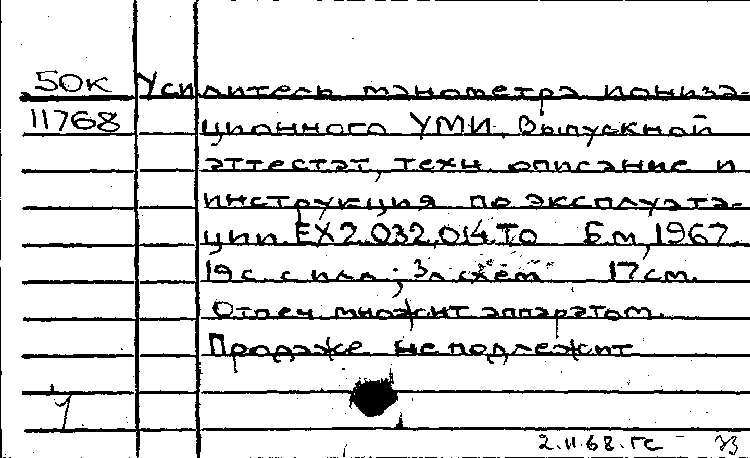 50К Усилитель манометра иониза-
11768 ционного УМИ. Выпускной
аттестат, техн. описание и
инструкция по эксплуата-
ции. ЕХ2.032.014.ТО Б.м., 1967.
19 с. с илл.; 3 л. схем 17 см.
Отпеч. множит. аппаратом.
Продаже не подлежит
1
2.11.68. ГС